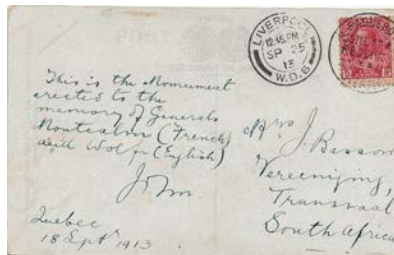 LIVERPOOL
12.45 PM
SP 25
13
W.D.B.
This is the Monument
erected to the
memory of Generals
Montcalm (French)
and Wolfe (English)
John
Quebec
18 Sept 1913
Mrs J. Besson
Vereeniging,
Transvaal
South Africa